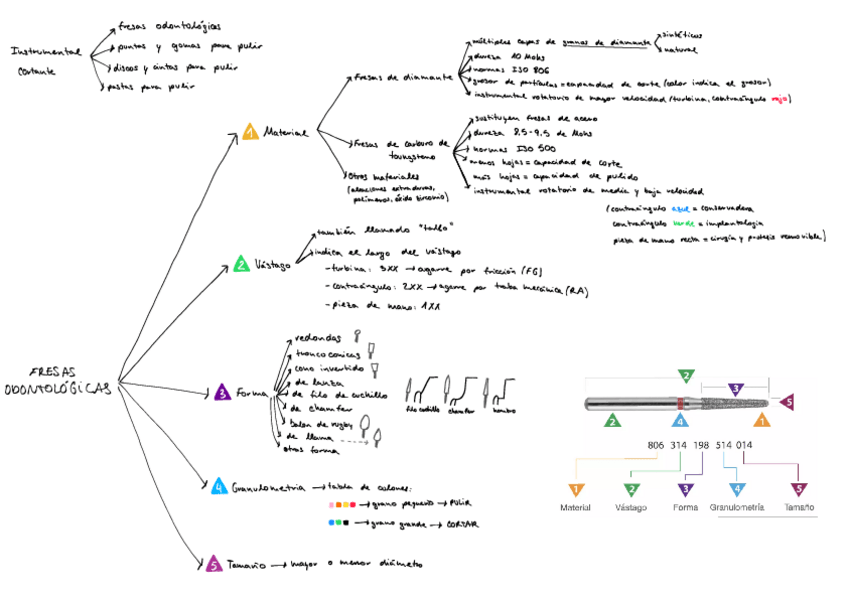 Instrumental
cortante
fresas odontológicas
puntas y gomas para pulir
discos y cintas para pulir
pastas para pulir
FRESAS
ODONTOLÓGICAS
1 Material
Fresas de diamante
múltiples capas de granos de diamante
sintéticos
natural
dureza 10 Mohs
normas ISO 806
grosor de partículas = capacidad de corte (color indica el grosor)
instrumental rotatorio de mayor velocidad (turbina, contraángulo rojo)
Fresas de carburo de
tungsteno
sustituyen fresas de acero
dureza 8,5-9,5 de Mohs
normas ISO 500
menos hojas = capacidad de corte
más hojas = capacidad de pulido
instrumental rotatorio de media y baja velocidad
(contraángulo azul = conservadora
contraángulo verde = implantología
pieza de mano recta = cirugía y protesis removible)
Otros materiales
(aleaciones extraduras,
polímeros, óxido zirconio)
2 Vástago
también llamado "tallo"
indica el largo del vástago
- turbina: 3XX → agarre por fricción (FG)
- contraángulo: 2XX → agarre por traba mecánica (RA)
- pieza de mano: 1XX
3 Forma
redondas
troncoconicas
cono invertido
de lanza
de filo de cuchillo
de chamfer
balon de rugby
de llama
otras forma
filo cuchillo
chamfer
hombro
4 Granulometria → tabla de colores:
→ grano pequeño → PULIR
→ grano grande → CORTAR
5 Tamaño → mayor o menor diámetro
2
3
5
2
4
1
806 314 198 514 014
1 2 3 4 5
Material Vástago Forma Granulometría Tamaño